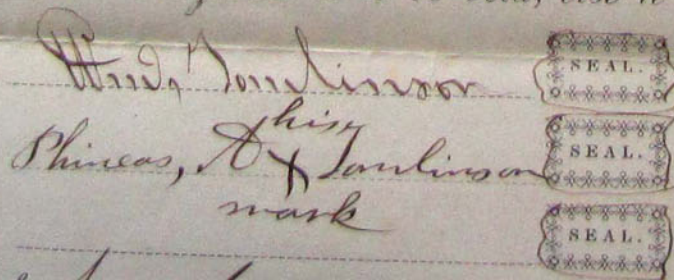 Tomlinson SEAL.
his
Phineas, A X Tomlinson SEAL.
mark
SEAL.